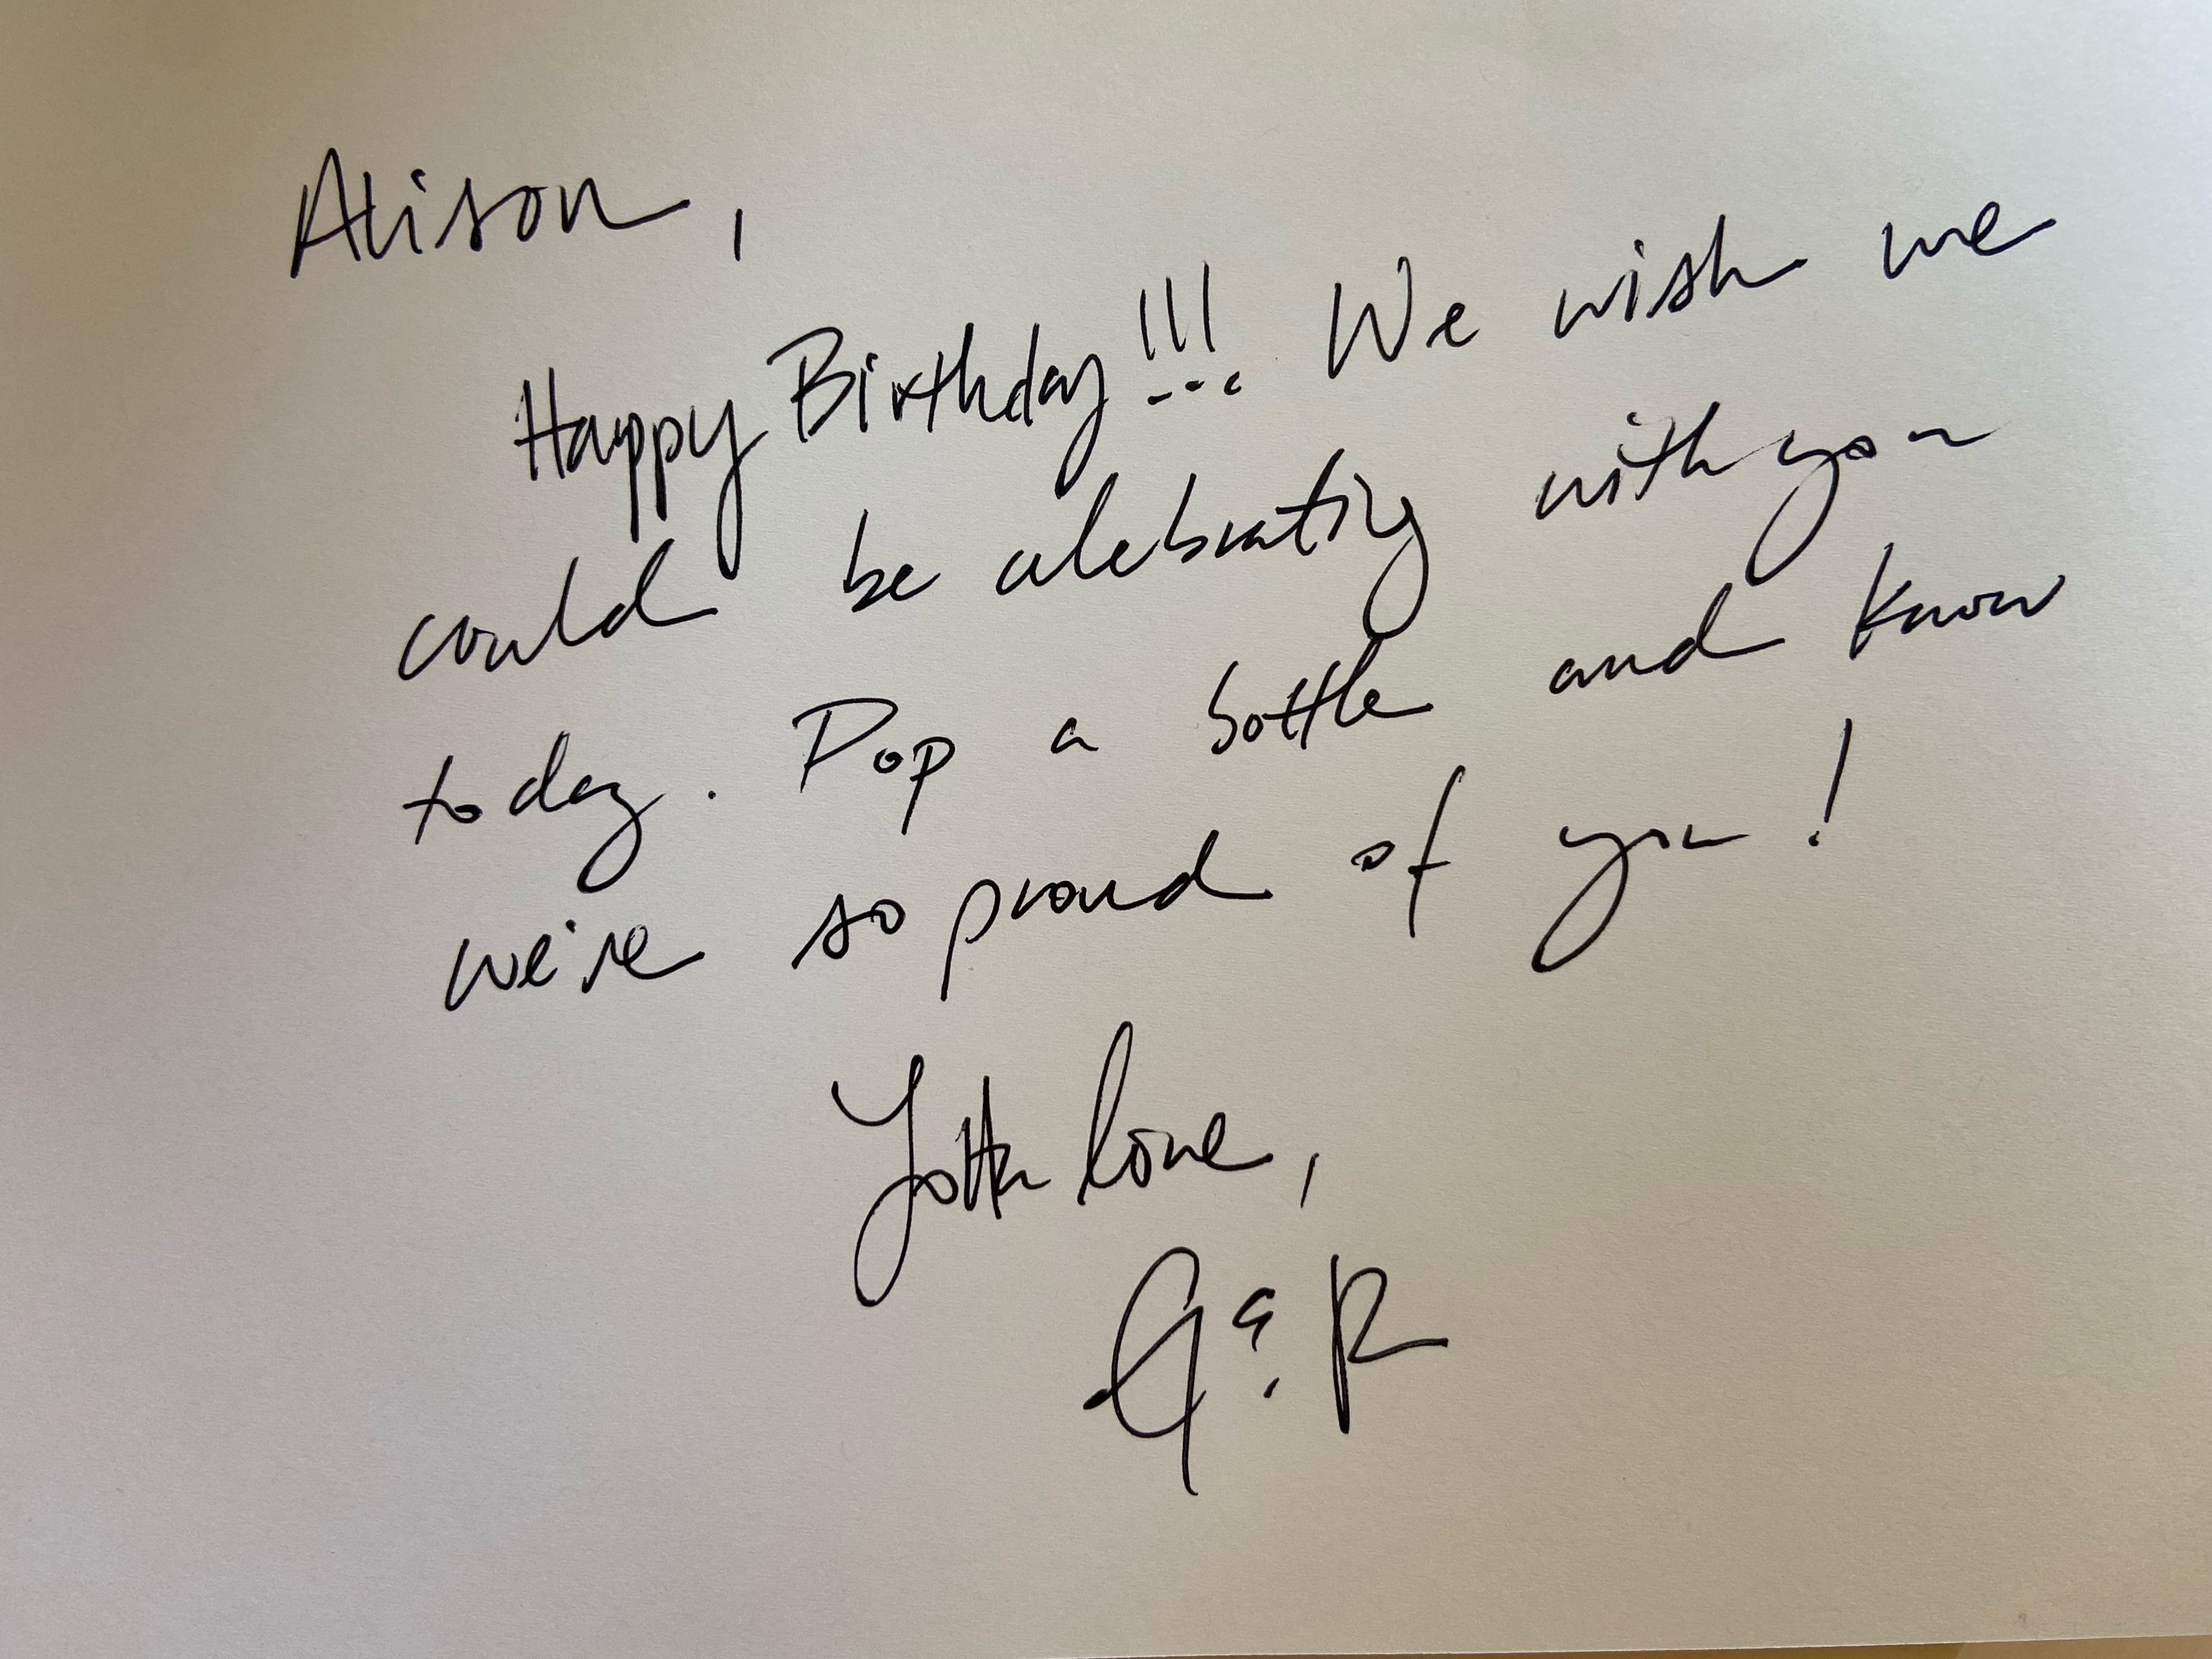 Alison,
Happy Birthday!!! We wish we
could be celebrating with you
today. Pop a bottle and know
we're so proud of you!
Lotta love,
G & R